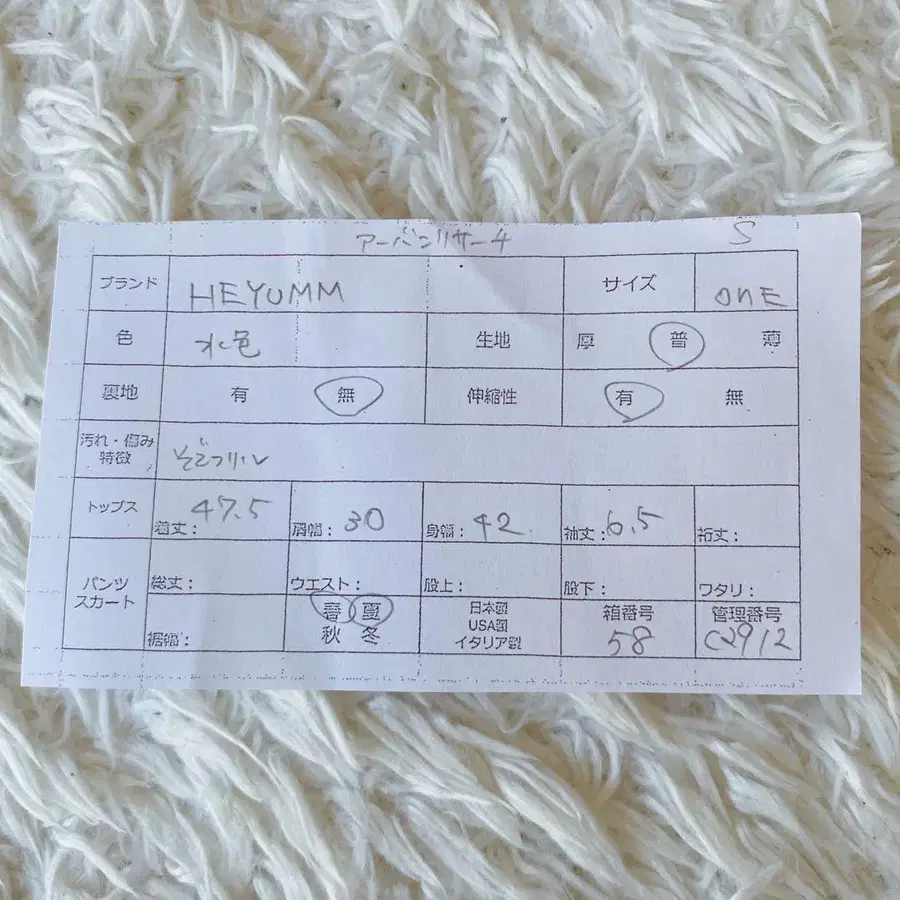 アーバンリサーチ S
ブランド HEYUMM サイズ ONE
色 水色 生地 厚 普 薄
裏地 有 無 伸縮性 有 無
汚れ・傷み
特徴 そでフリル
トップス 着丈: 47.5 肩幅: 30 身幅: 42 袖丈: 6.5 裄丈:
パンツ
スカート
総丈: ウエスト: 股上: 股下: ワタリ:
裾幅: 春 夏
秋 冬
日本製
USA製
イタリア製
箱番号
58
管理番号
C2912